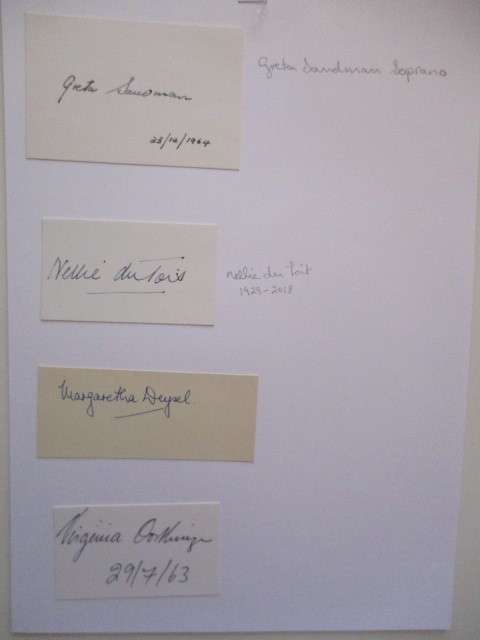 Greta Sandman
25/10/1964
Greta Sandman Soprano
Nellie du Toit
Nellie du Toit
1929-2018
Margaretha Deysel
Virginia
29/7/63